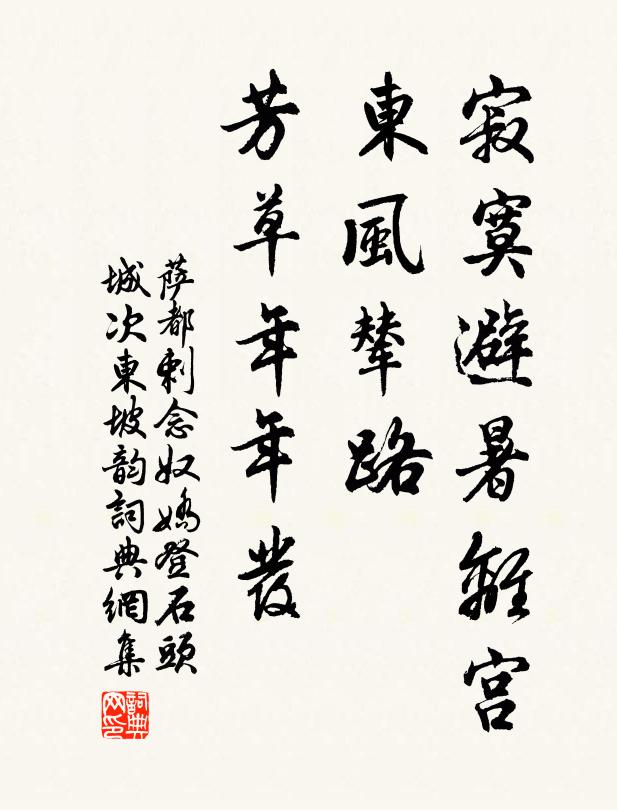 寂寞避暑離宮
東風輦路
芳草年年發
薩都剌念奴嬌登石頭
城次東坡韻詞典網集
詞典
网印